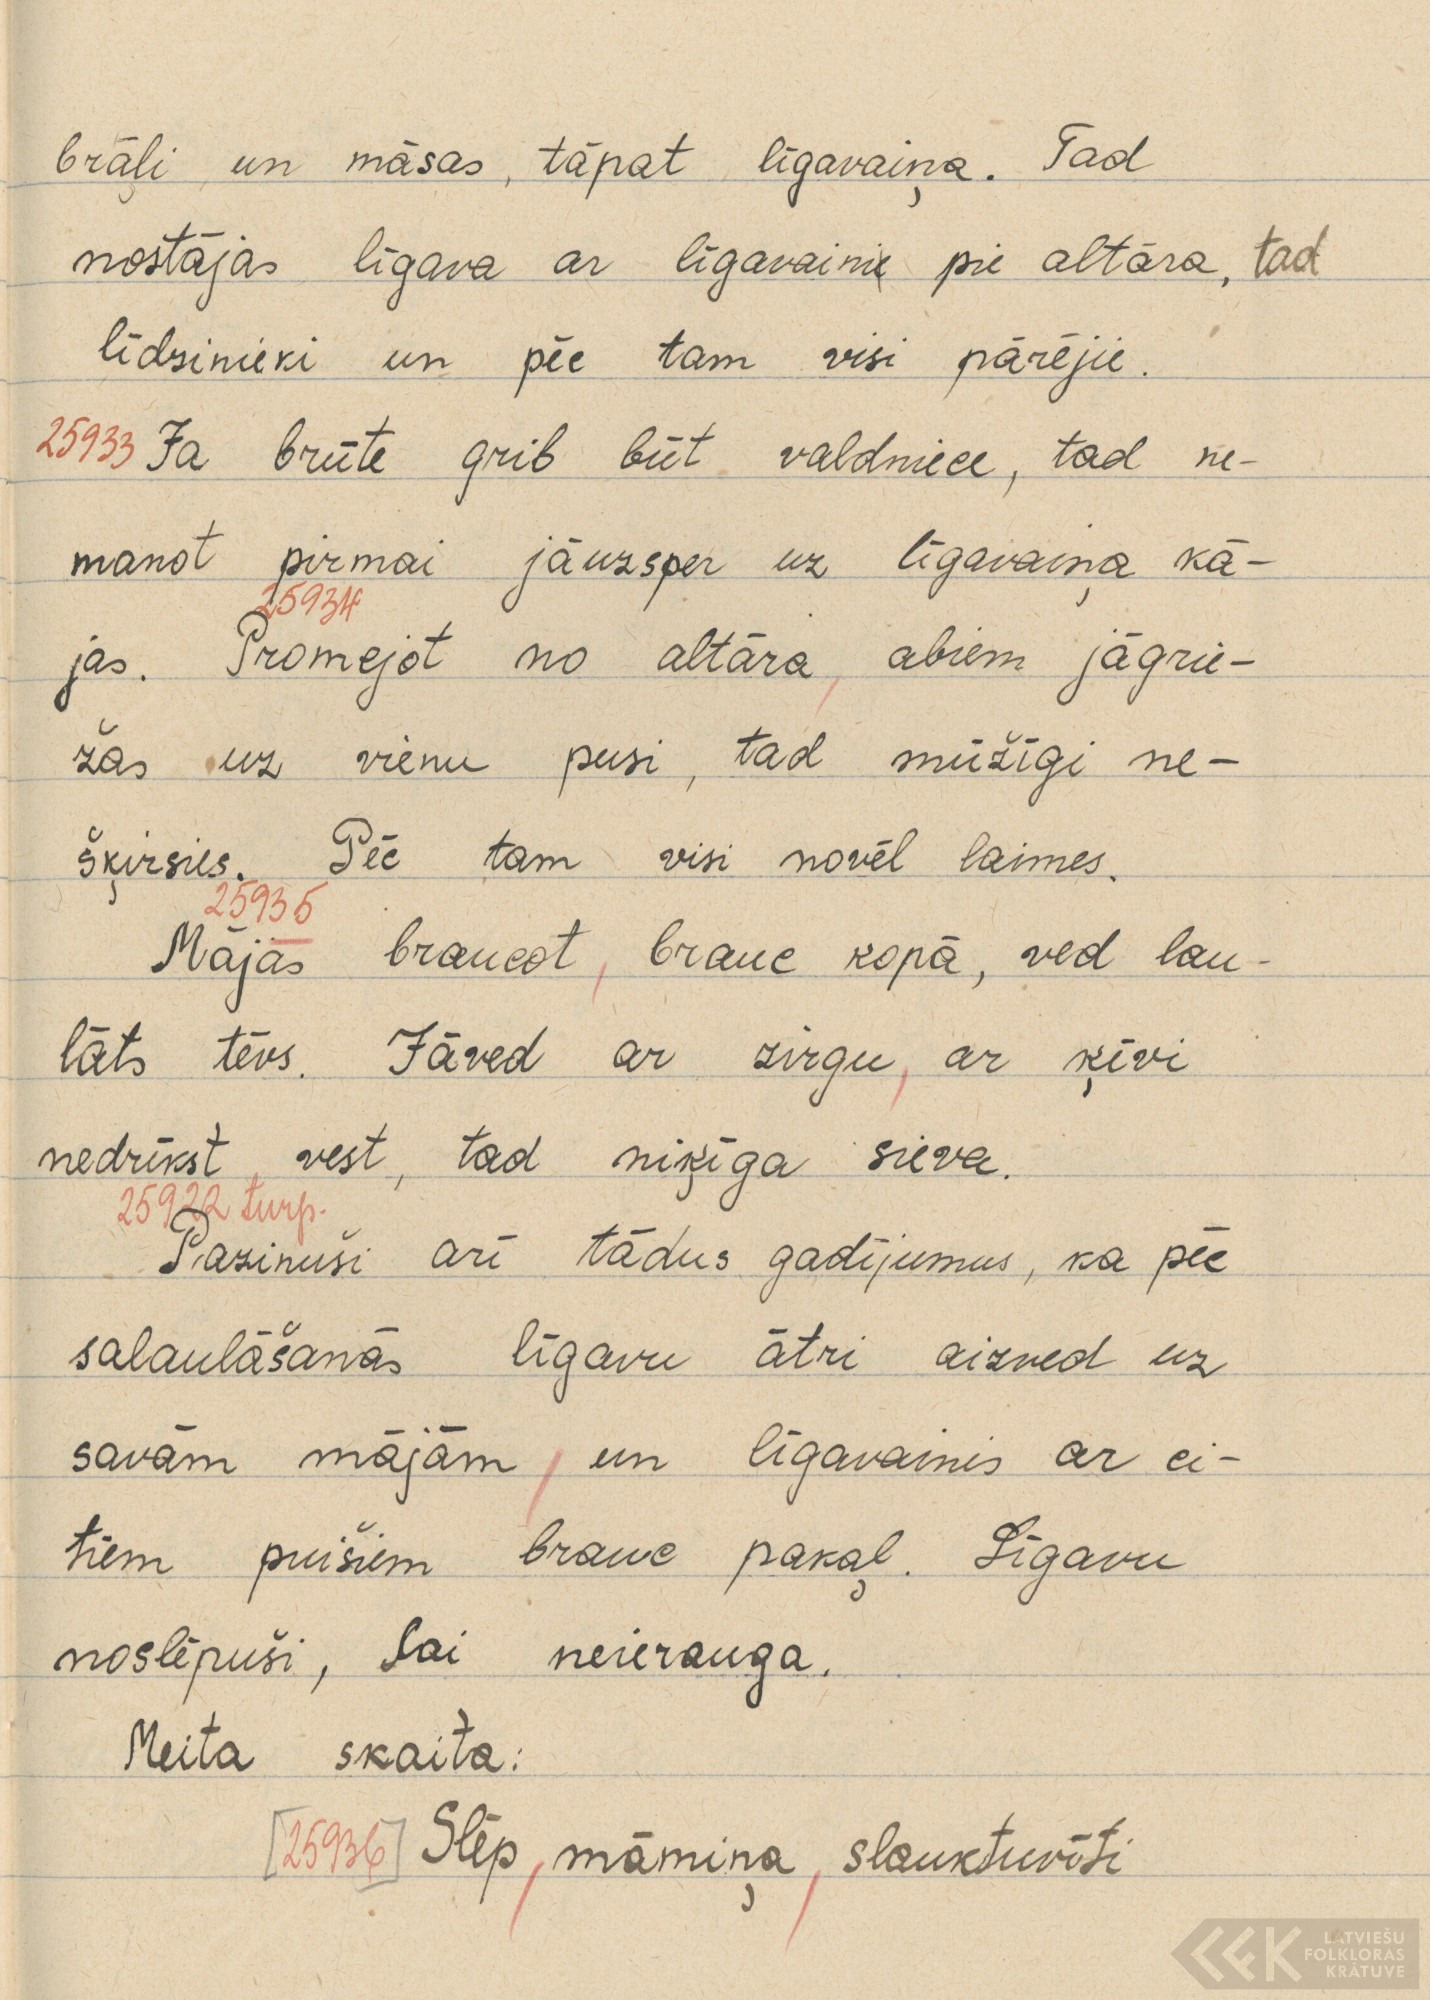 brāļi un māsas, tāpat līgavaiņa. Tad
nostājas līgava ar līgavaini pie altāra, tad
līdzinieki un pēc tam visi pārējie.
25933 Ja brūte grib būt valdniece, tad ne-
manot pirmai jāuzsper uz līgavaiņa kā-
25934
jas. Promejot no altāra, abiem jāgrie-
žās uz vienu pusi, tad mūžīgi ne-
šķirsies. Pēc tam visi novēl laimes.
25935
Mājās braucot, brauc kopā, ved lau-
lāts tēvs. Jāved ar zirgu, ar ķēvi
nedrīkst vest, tad niķīga sieva.
25922 turp.
Pazinuši arī tādus gadījumus, ka pēc
salaulāšanās līgavu ātri aizved uz
savām mājām, un līgavainis ar ci-
tiem puišiem brauc pakaļ. Līgavu
noslēpuši, lai neierauga.
Meita skaita:
[25936] Slēp, māmiņa, slauktuvīti
LATVIEŠU
FOLKLORAS
KRĀTUVE